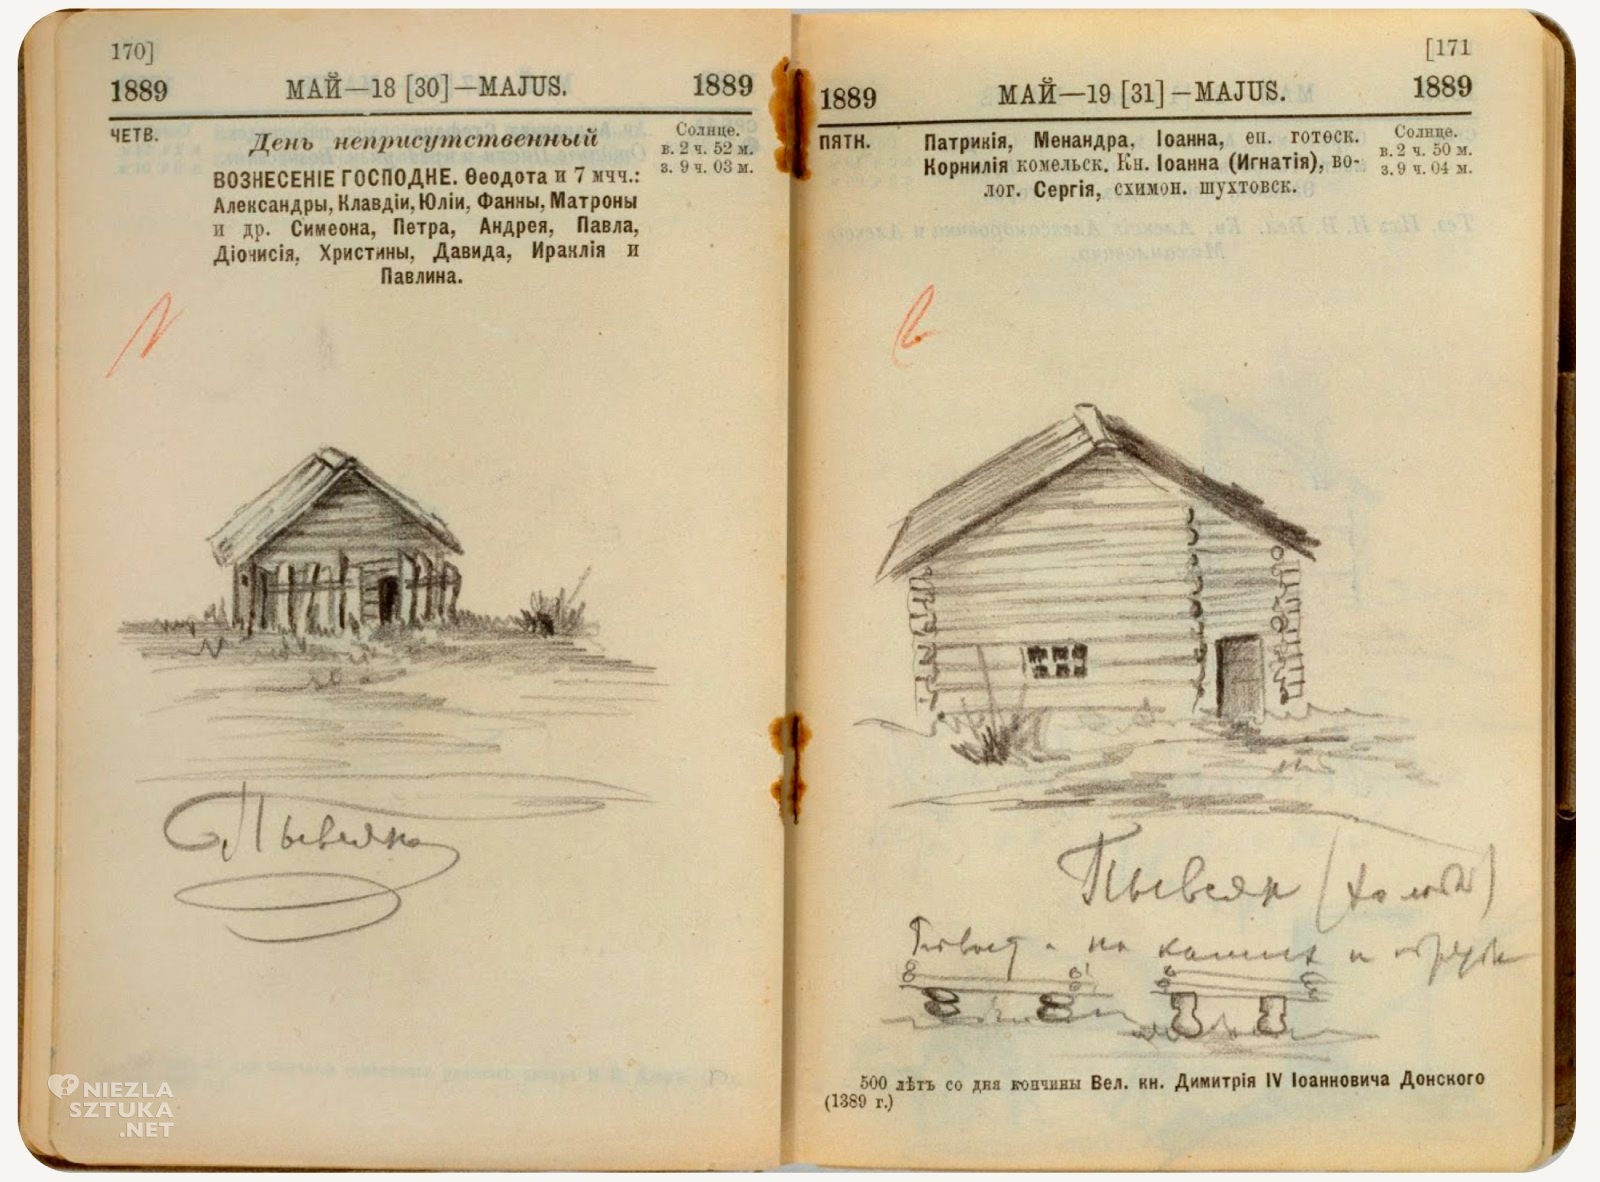 170]
1889 МАЙ—18 [30]—MAJUS. 1889
ЧЕТВ.
День неприсутственный
Солнце.
в. 2 ч. 52 м.
з. 9 ч. 03 м.
ВОЗНЕСЕНІЕ ГОСПОДНЕ. Ѳеодота и 7 мчч.:
Александры, Клавдіи, Юліи, Фанны, Матроны
и др. Симеона, Петра, Андрея, Павла,
Діонисія, Христины, Давида, Ираклія и
Павлина.
Пывсян
NIEZLA
SZTUKA
.NET
[171
1889 МАЙ—19 [31]—MAJUS. 1889
ПЯТН.
Патрикія, Менандра, Іоанна, еп. готѳск.
Корнилія комельск. Кн. Іоанна (Игнатія), во-
лог. Сергія, схимон. шухтовск.
Солнце.
в. 2 ч. 50 м.
з. 9 ч. 04 м.
Пывсян
на камнях и
500 лѣтъ со дня кончины Вел. кн. Димитрія IV Іоанновича Донского
(1389 г.)